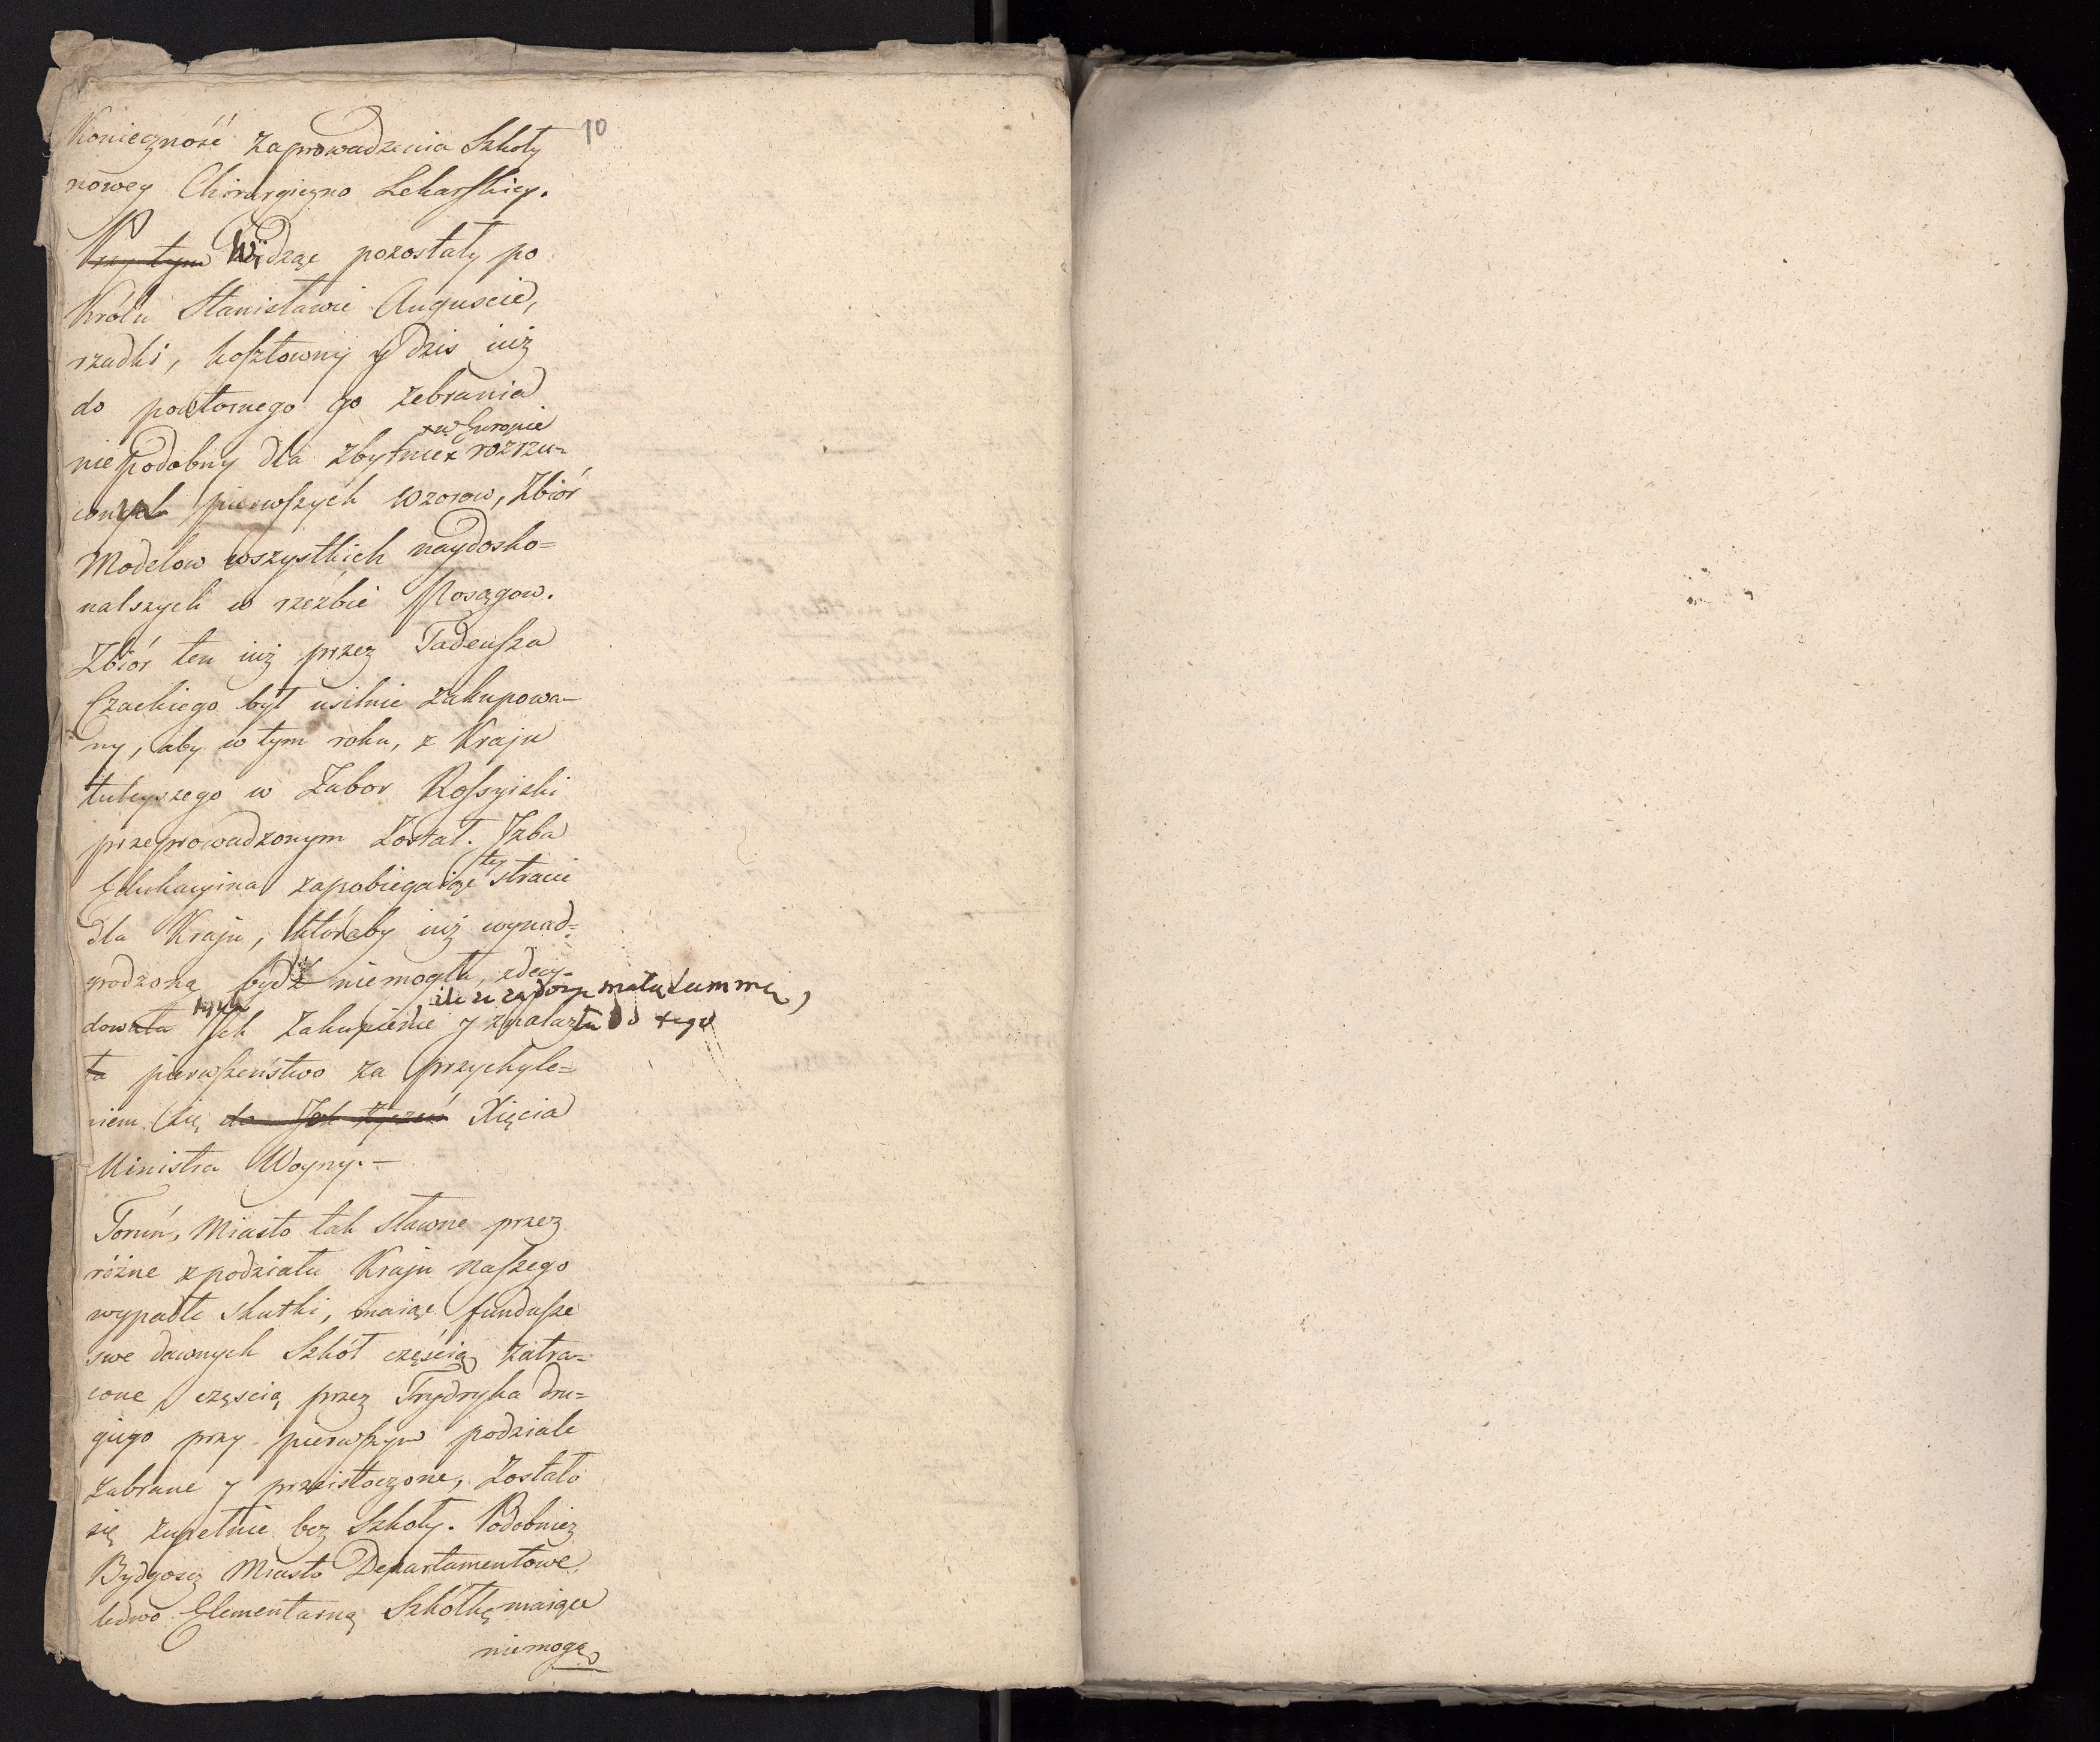 10
Konieczność zaprowadzenia Szkoły
nowey Chirurgiczno Lekarskiey.
Przytym Widząc pozostały po
Królu Stanisławie Auguscie,
rzadki, kosztowny y dzis iuż
do powtornego go zebrania
w Europie
niepodobny dla zbytnie rozrzu-
conych pierwszych wzorow, Zbiór
Modelow wszystkich naydosko=
nalszych w rzeźbie Posągow.
Zbiór ten iuż przez Tadeusza
Czackiego był usilnie zakupowa-
ny, aby w tym roku, z Kraju
tuteyszego w Zabor Rossyiski
przeprowadzonym został. Izba
Edukacyina zapobiegaiąc tey stracie
dla Kraju, któraby iuż wynad=
grodzoną bydź niemogła, zdecy-
ile że za dosyc małą summę,
dowała Ich zakupienie y znalazła do tego
ta pierwszeństwo za przychyle=
niem się do Jey życzeń Xięcia
Ministra Woyny.-
Toruń, Miasto tak sławne przez
różne z podziału Kraju naszego
wypadłe skutki, maiąc fundusze
swe dawnych Szkół częścią zatra-
cone, częscią przez Frydryka dru=
giego przy pierwszym podziale
zabrane y przeistoczone, zostało
się zupełnie bez Szkoły. Podobniez
Bydgosz Miasto Departamentowe
ledwo Elementarną Szkółkę maiące
niemogą